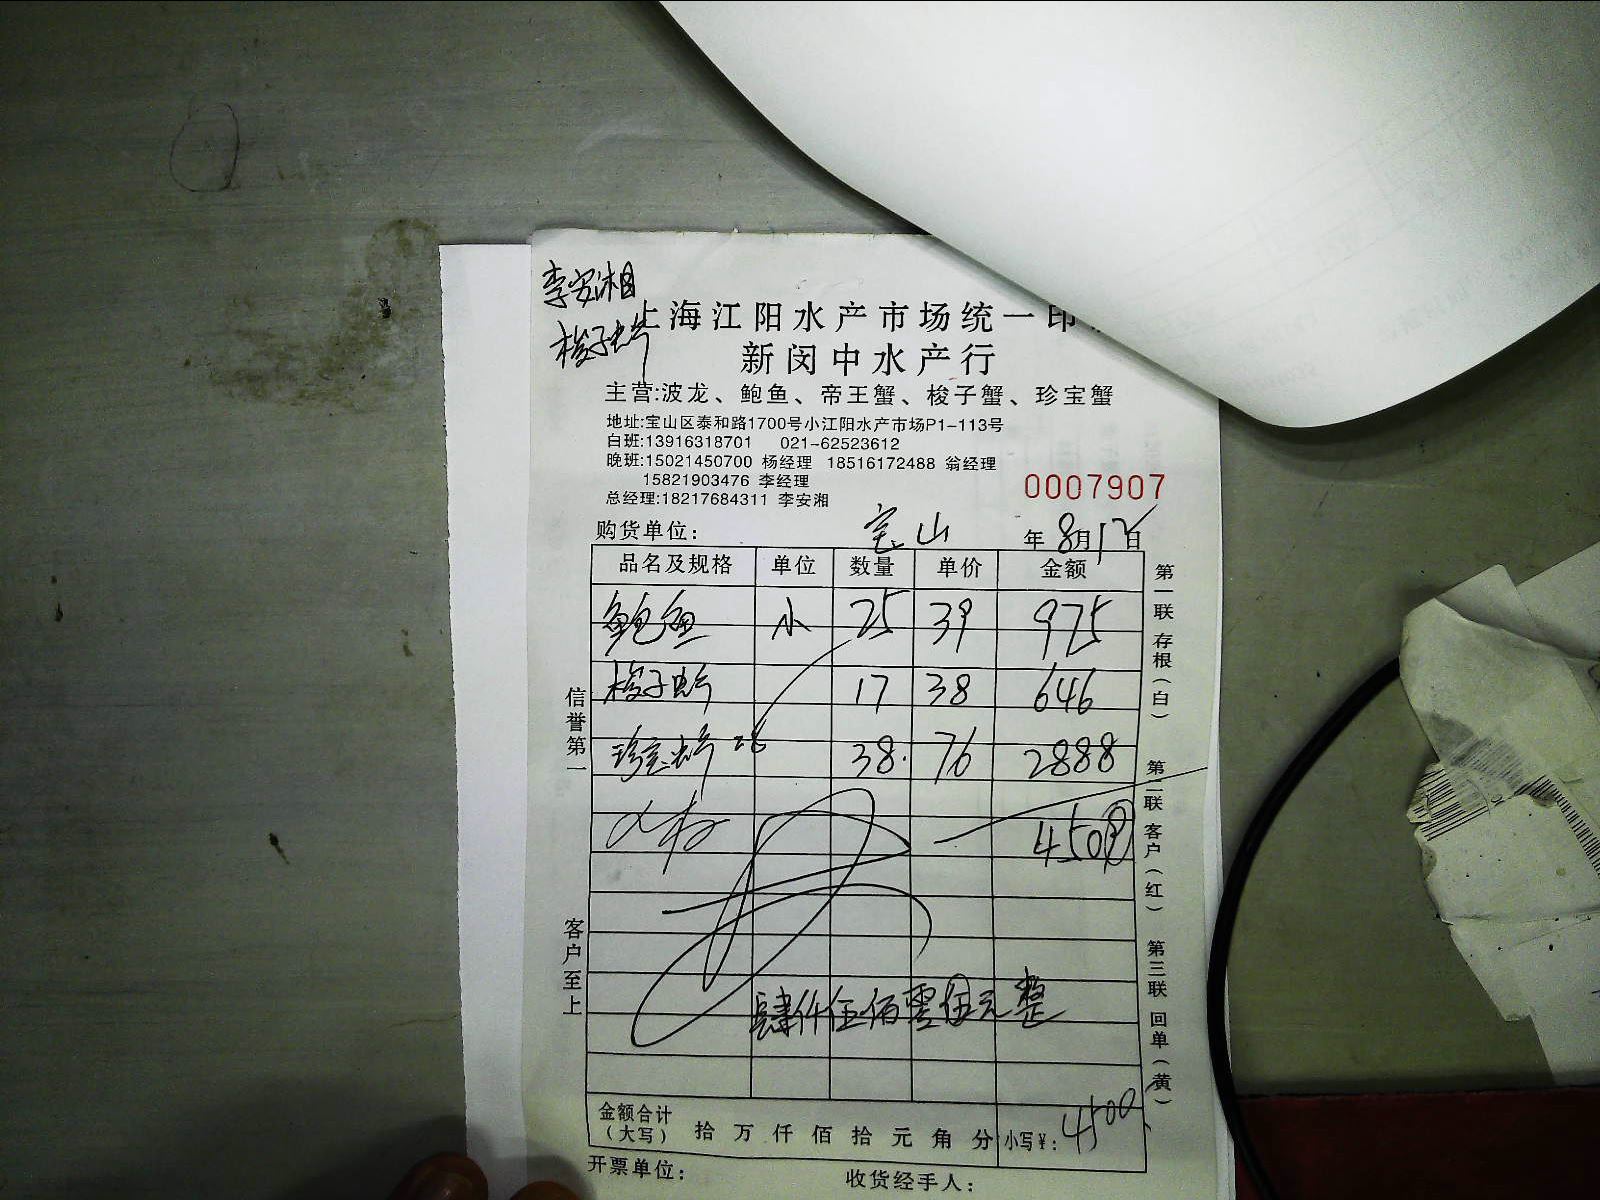 李安湘
梭子蟹
上海江阳水产市场统一印
新闵中水产行
主营:波龙、鲍鱼、帝王蟹、梭子蟹、珍宝蟹
地址:宝山区泰和路1700号小江阳水产市场P1-113号
白班:13916318701 021-62523612
晚班:15021450700 杨经理 18516172488 翁经理
15821903476 李经理
总经理:18217684311 李安湘
0007907
购货单位: 宝山 年 8月12日
品名及规格 单位 数量 单价 金额
鲍鱼 小 25 39 975
梭子蟹 17 38 646
珍宝蟹 38. 76 2888
肆仟伍佰零伍元整
金额合计
(大写) 拾 万 仟 佰 拾 元 角 分 小写¥: 4500
开票单位: 收货经手人:
信誉第一
客户至上
第一联 存根(白)
第二联 客户(红)
第三联 回单(黄)